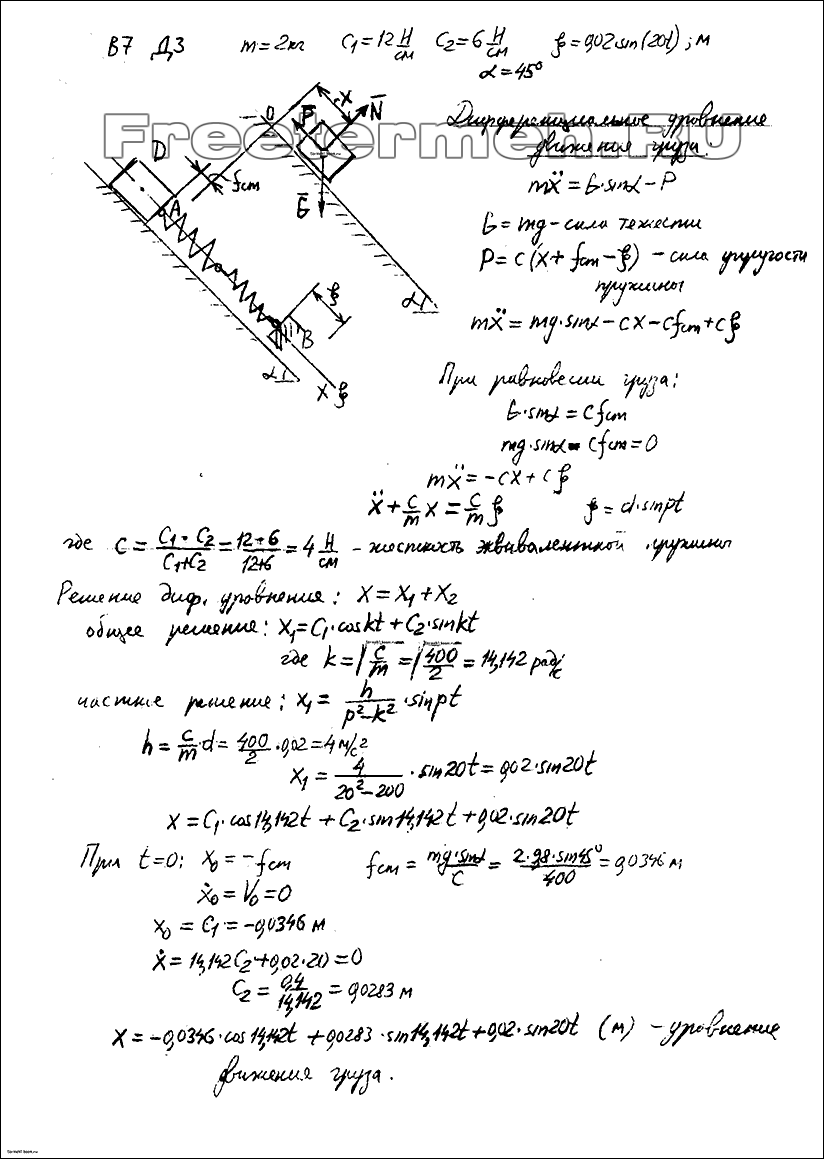 В7 Д3 m=2кг C₁=12 Н/см C₂=6 Н/см ξ=0,02sin(20t); м
α=45°
Freetermeh.RU
Дифференциальное уровнение
движения груза:
mẍ = G·sinα − P
G = mg − сила тежести
P = c(x + fст − ξ) − сила упругости
пружины
mẍ = mg·sinα − cx − cfст + cξ
D A fст O x P N G α B ξ α x ξ
При равновесии груза:
G·sinα = cfст
mg·sinα − cfст = 0
mẍ = −cx + cξ
ẍ + c/m x = c/m ξ ξ = d·sinpt
где C = C₁·C₂/C₁+C₂ = 12·6/12+6 = 4 Н/см − жосткость эквивалентной пружины
Решение диф. уровнения: X = X₁ + X₂
общее решение: X₁ = C₁·coskt + C₂·sinkt
где k = √c/m = √400/2 = 14,142 рад/с
частное решение: x₁ = h/p²−k² ·sinpt
h = c/m·d = 400/2·0,02 = 4 м/с²
X₁ = 4/20²−200 · sin20t = 0,02·sin20t
X = C₁·cos14,142t + C₂·sin14,142t + 0,02·sin20t
При t=0: x₀ = −fст fст = mg·sinα/C = 2·9,8·sin45°/400 = 0,0346 м
ẋ₀ = V₀ = 0
x₀ = C₁ = −0,0346 м
ẋ = 14,142C₂ + 0,02·20 = 0
C₂ = 0,4/14,142 = 0,0283 м
X = −0,0346·cos14,142t + 0,0283·sin14,142t + 0,02·sin20t (м) − уровнение
движения груза.